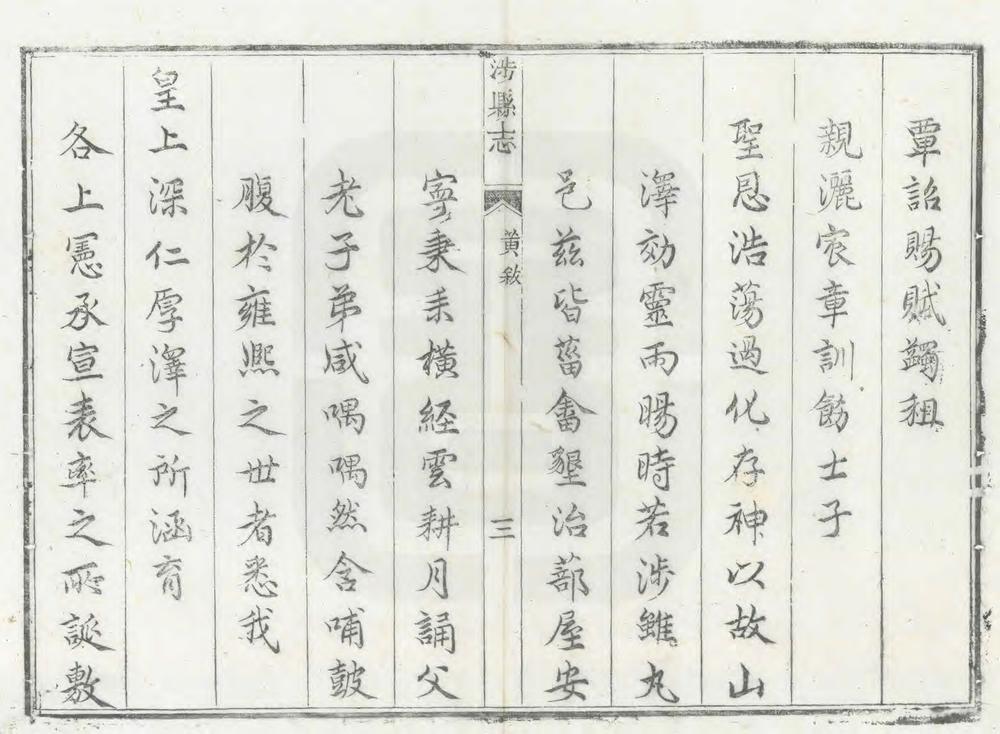 覃詔賜賦蠲租
親灑宸章訓飭士子
聖恩浩蕩過化存神以故山
澤効靈雨暘時若涉雖丸
邑茲皆菑畬墾治蔀屋安
涉縣志
黃敘
三
寧秉耒橫經雲耕月誦父
老子弟咸喁喁然含哺鼓
腹於雍熙之世者悉我
皇上深仁厚澤之所涵育
各上憲承宣表率之所誕敷